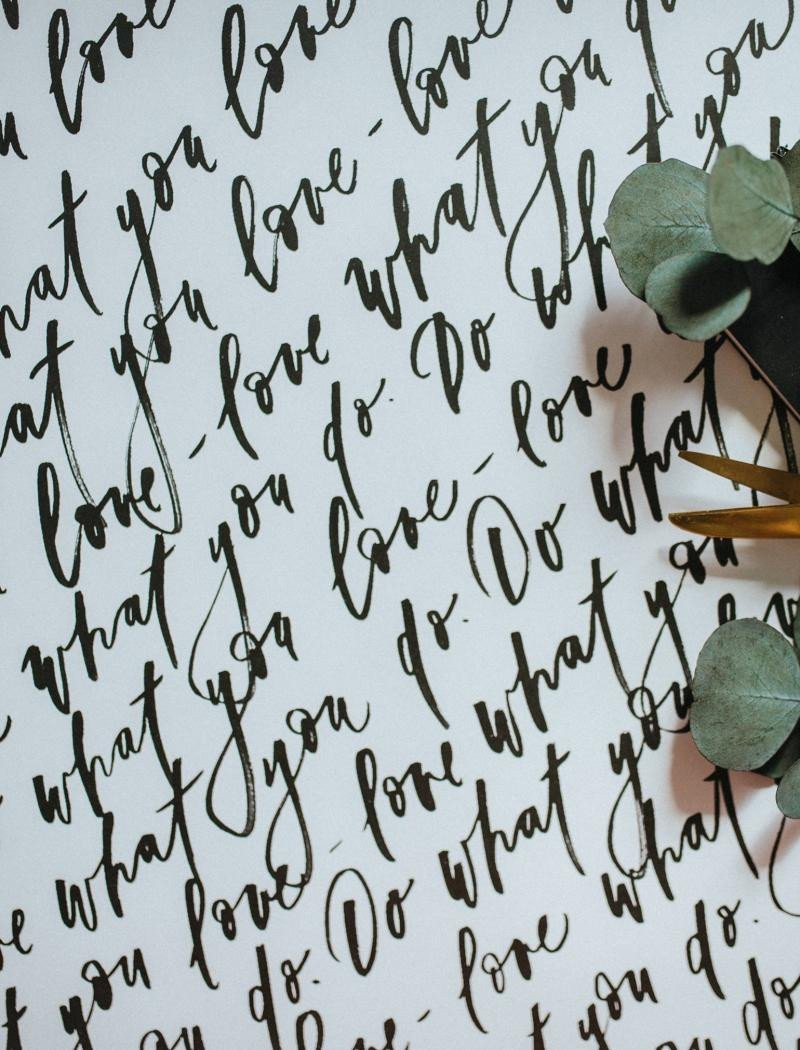 love
u love
hat you love
at you love - love
love - love what you
what you do. Do what you
what you love - love
what you do. Do what you
what you love - love what you
t you do. Do what you
love - love what
t you do.